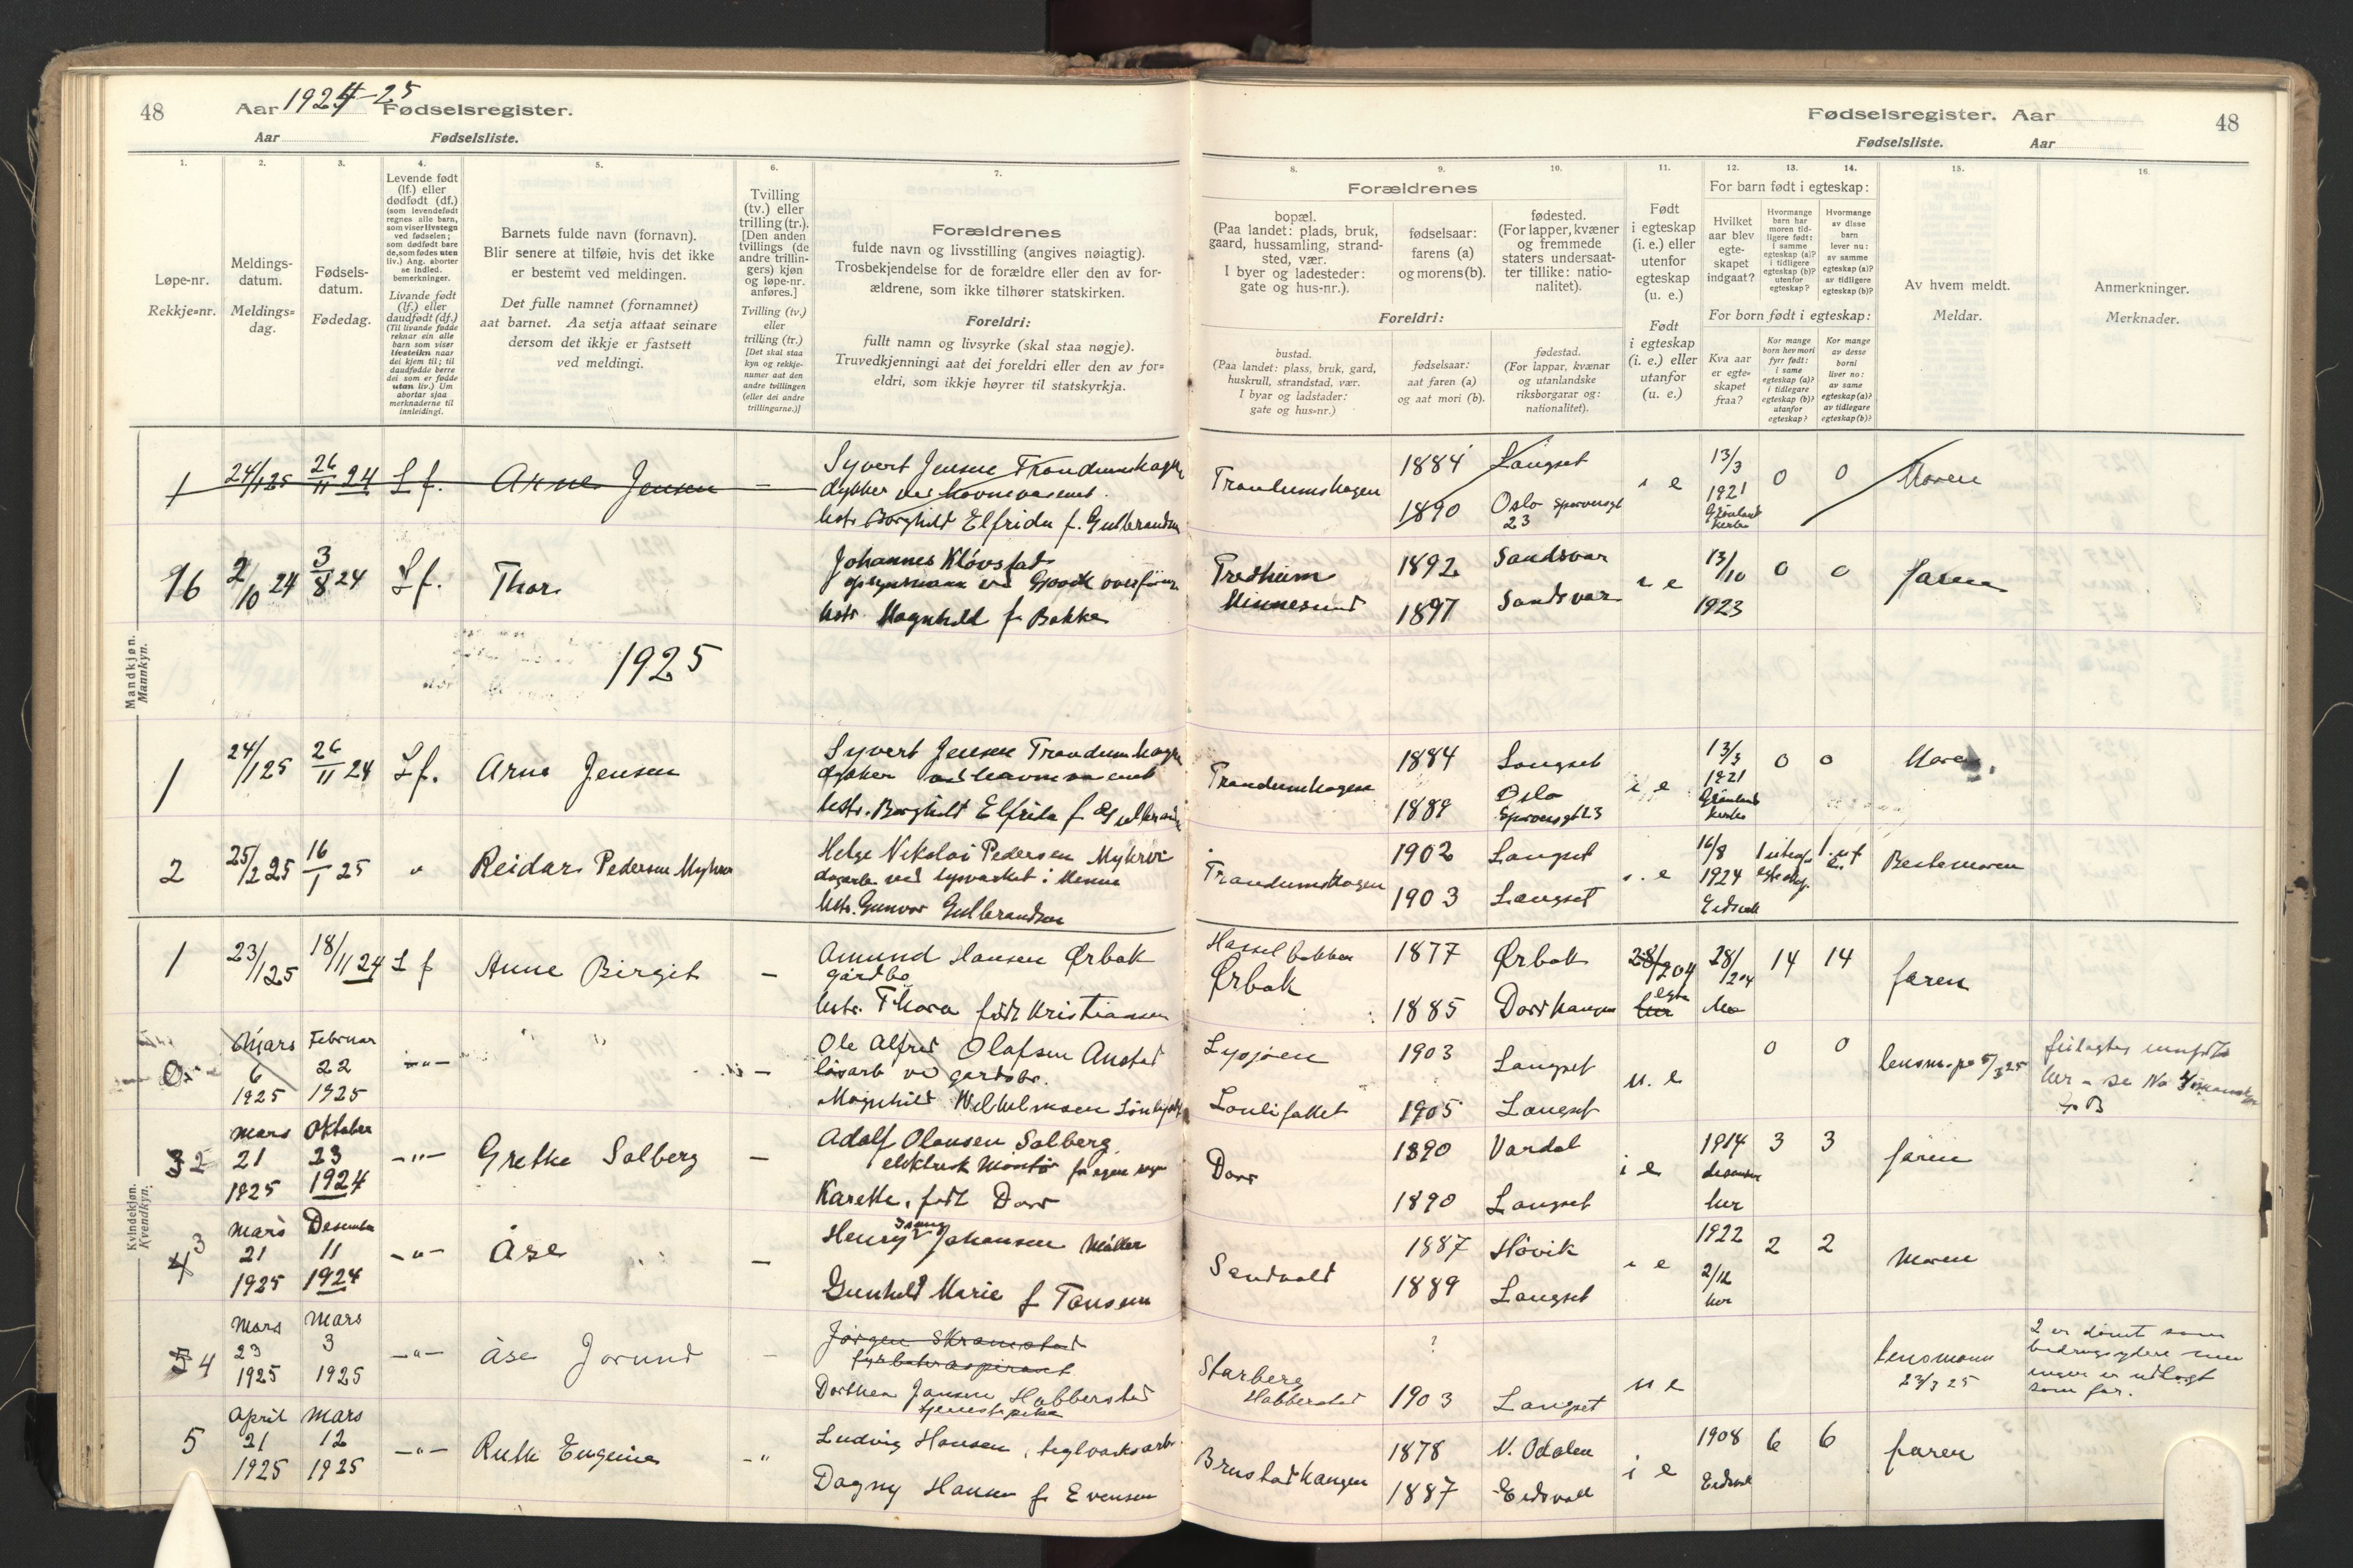 48
Aar 1924-25 Fødselsregister.
Aar Fødselsliste.
1.
2.
3.
4.
5.
6.
7.
Løpe-nr.
Rekkje=nr.
Meldings-
datum.
Meldings=
dag.
Fødsels-
datum.
Fødedag.
Levende født
(lf.) eller
dødfødt (df.)
(som levendefødt
regnes alle barn,
som viser livstegn
ved fødselen;
som dødfødt bare
de, som fødes uten
liv.) Ang. aborter
se indled.
bemerkninger.
Livande født
(lf.) eller
daudfødt (df.)
(Til livande fødde
reknar ein alle
barn som viser
livsteikn naar
dei kjem til; til
daudfødde berre
dei som er fødde
utan liv.) Um
abortar sjaa
merknaderne til
innleidingi.
Barnets fulde navn (fornavn).
Blir senere at tilføie, hvis det ikke
er bestemt ved meldingen.
Det fulle namnet (fornamnet)
aat barnet. Aa setja attaat seinare
dersom det ikkje er fastsett
ved meldingi.
Tvilling
(tv.) eller
trilling (tr.).
[Den anden
tvillings (de
andre trillin-
gers) kjøn
og løpe-nr.
anføres.]
Tvilling (tv.)
eller
trilling (tr.)
[Det skal staa
kyn og rekkje-
numer aat den
andre tvillingen
(eller dei andre
trillingarne.)]
Forældrenes
fulde navn og livsstilling (angives nøiagtig).
Trosbekjendelse for de forældre eller den av for-
ældrene, som ikke tilhører statskirken.
Foreldri:
fullt namn og livsyrke (skal staa nøgje).
Truvedkjenningi aat dei foreldri eller den av for=
eldri, som ikkje høyrer til statskyrkja.
Mandkjøn.
Mannkyn.
1 24/1 25 26/11 24 Lf. Arne Jensen —
Syvert Jensen Trandumshagen
dykker ved havnevæsenet.
hstr. Borghild Elfrida f. Gulbrandsen
16 2/10 24 3/8 24 Lf. Thor
Johannes Kløvstad
opsynsmann ved
hstr. Magnhild f. Bakke
1925
1 24/1 25 26/11 24 Lf. Arne Jensen
Syvert Jensen Trandumhagen
dykker ved havnevæsenet
hstr. Borghild Elfrida f.
2 25/2 25 16/1 25 " Reidar Pedersen Myhrer
Helge Nikolai Pedersen
hstr. Gunvor Gulbrandsen
Kvindekjøn.
Kvendkyn.
1 23/1 25 18/11 24 L f Anne Birgit —
Amund Hansen Ørbak
gårdbr.
hstr. Thora født Kristiansen
Mars Februar
6 22 —"— —
1925 1925
Ole Alfred Olafsen Anstad
Magnhild Wilhelmsen
Mars Oktober
3 2 21 23 —"— Grethe Solberg —
1925 1924
Adolf Olausen Solberg
elektrisk Montør
Karethe, født Dorr
Mars Desember
4 3 21 11 —"— Åse —
1925 1924
Henry Johansen Møller
Gunhild Marie f
Mars Mars
5 4 23 3 —"— Åse Jorund —
1925 1925
Jørgen Skramstad
fyrbøteraspirant
Dorthea Jansen Habberstad
tjenestepike
April Mars
5 21 12 —"— Ruth Eugenie —"
1925 1925
Ludvig Hansen, teglverksarb.
Dagny Hansen f. Evensen
Fødselsregister. Aar
48
Fødselsliste. Aar
8.
9.
10.
11.
12.
13.
14.
15.
16.
Forældrenes
bopæl.
(Paa landet: plads, bruk,
gaard, hussamling, strand-
sted, vær.
I byer og ladesteder:
gate og hus-nr.).
fødselsaar:
farens (a)
og morens (b).
fødested.
(For lapper, kvæner
og fremmede
staters undersaat-
ter tillike: natio-
nalitet).
Foreldri:
bustad.
(Paa landet: plass, bruk, gard,
huskrull, strandstad, vær.
I byar og ladstader:
gate og hus=nr.)
fødselsaar:
aat faren (a)
og aat mori (b).
fødestad.
(For lappar, kvænar
og utanlandske
riksborgarar og:
nationalitet).
Født
i egteskap
(i. e.) eller
utenfor
egteskap
(u. e.)
Født
i egteskap
(i. e.) eller
utanfor
egteskap
(u. e.)
For barn født i egteskap:
Hvilket
aar blev
egte-
skapet
indgaat?
Hvormange
barn har
moren tid-
ligere født:
i samme
egteskap (a)?
i tidligere
egteskap (b)?
utenfor
egteskap?
Hvormange
av disse
barn
lever nu:
av samme
egteskap (a)?
av tidligere
egteskap (b)?
For born født i egteskap:
Kva aar
er egte=
skapet
fraa?
Kor mange
born hev mori
fyrr født:
i same
egteskap (a)?
i tidlegare
egteskap (b)?
utanfor
egteskap?
Kor mange
av desse
borni
liver no:
av same
egteskap (a)?
av tidlegare
egteskap (b)?
Av hvem meldt.
Meldar.
Anmerkninger.
Merknader.
Trandumshagen 1884 Langset i e 13/3 0 0 Moren
1890 Oslo 1921
23 Grønland
kirke
1892 Sandsvær i e 13/10 0 0 faren
Minnesund 1897 Sandsvær 1923
Trandumhagen 1884 Langset i e 13/3 0 0 Moren
1889 Oslo 1921
Grønland
kirke
Trandumshagen 1902 Langset i e 16/8
1903 Langset 1924 Bestemoren
Eidsvoll
Hasselbakken 1877 Ørbak 28/2 04 28/2 04 14 14 faren
Ørbak 1885
Lysjøen 1903 Langset u. e 0 0 lensm. 25
1905 Langset
Dorr 1890 Vardal i e 1914 3 3 faren
1890 Langset desember
her
Sandvold 1887 Høvik i e 1922 2 2 Moren
1889 Langset 2/12
her
Starberg ? u e lensmann
Habberstad 1903 Langset 23/3 25
2 er dømt som
bidragsydere men
ingen er utlagt
som far.
Brustadhaugen 1878 N. Odalen i e 1908 6 6 faren
1887 Eidsvoll Eidsvoll